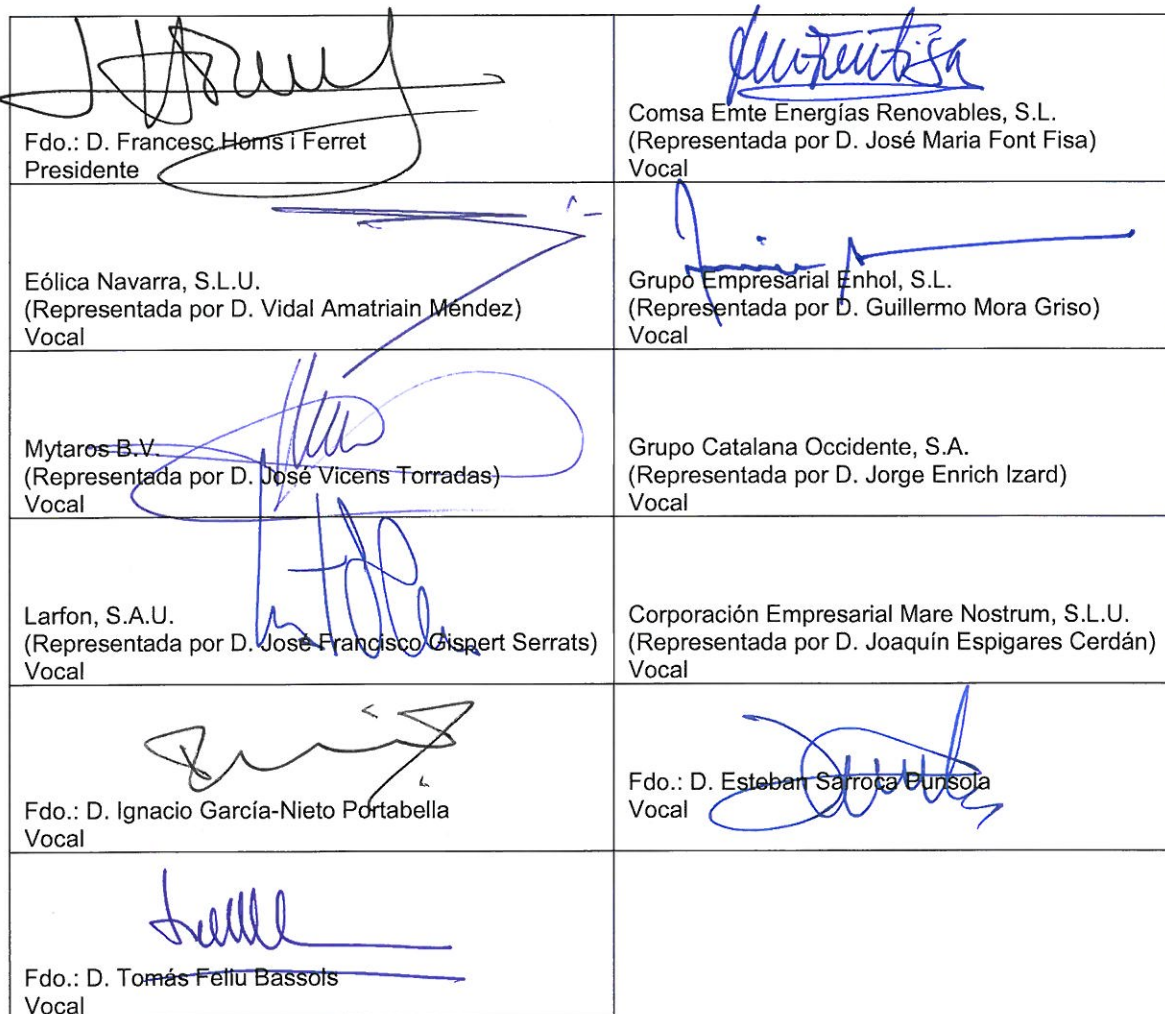 Fdo.: D. Francesc Homs i Ferret
Presidente
Comsa Emte Energías Renovables, S.L.
(Representada por D. José Maria Font Fisa)
Vocal
Eólica Navarra, S.L.U.
(Representada por D. Vidal Amatriain Méndez)
Vocal
Grupo Empresarial Enhol, S.L.
(Representada por D. Guillermo Mora Griso)
Vocal
Mytaros B.V.
(Representada por D. José Vicens Torradas)
Vocal
Grupo Catalana Occidente, S.A.
(Representada por D. Jorge Enrich Izard)
Vocal
Larfon, S.A.U.
(Representada por D. José Francisco Gispert Serrats)
Vocal
Corporación Empresarial Mare Nostrum, S.L.U.
(Representada por D. Joaquín Espigares Cerdán)
Vocal
Fdo.: D. Ignacio García-Nieto Portabella
Vocal
Fdo.: D. Esteban Sarroca Punsola
Vocal
Fdo.: D. Tomás Feliu Bassols
Vocal